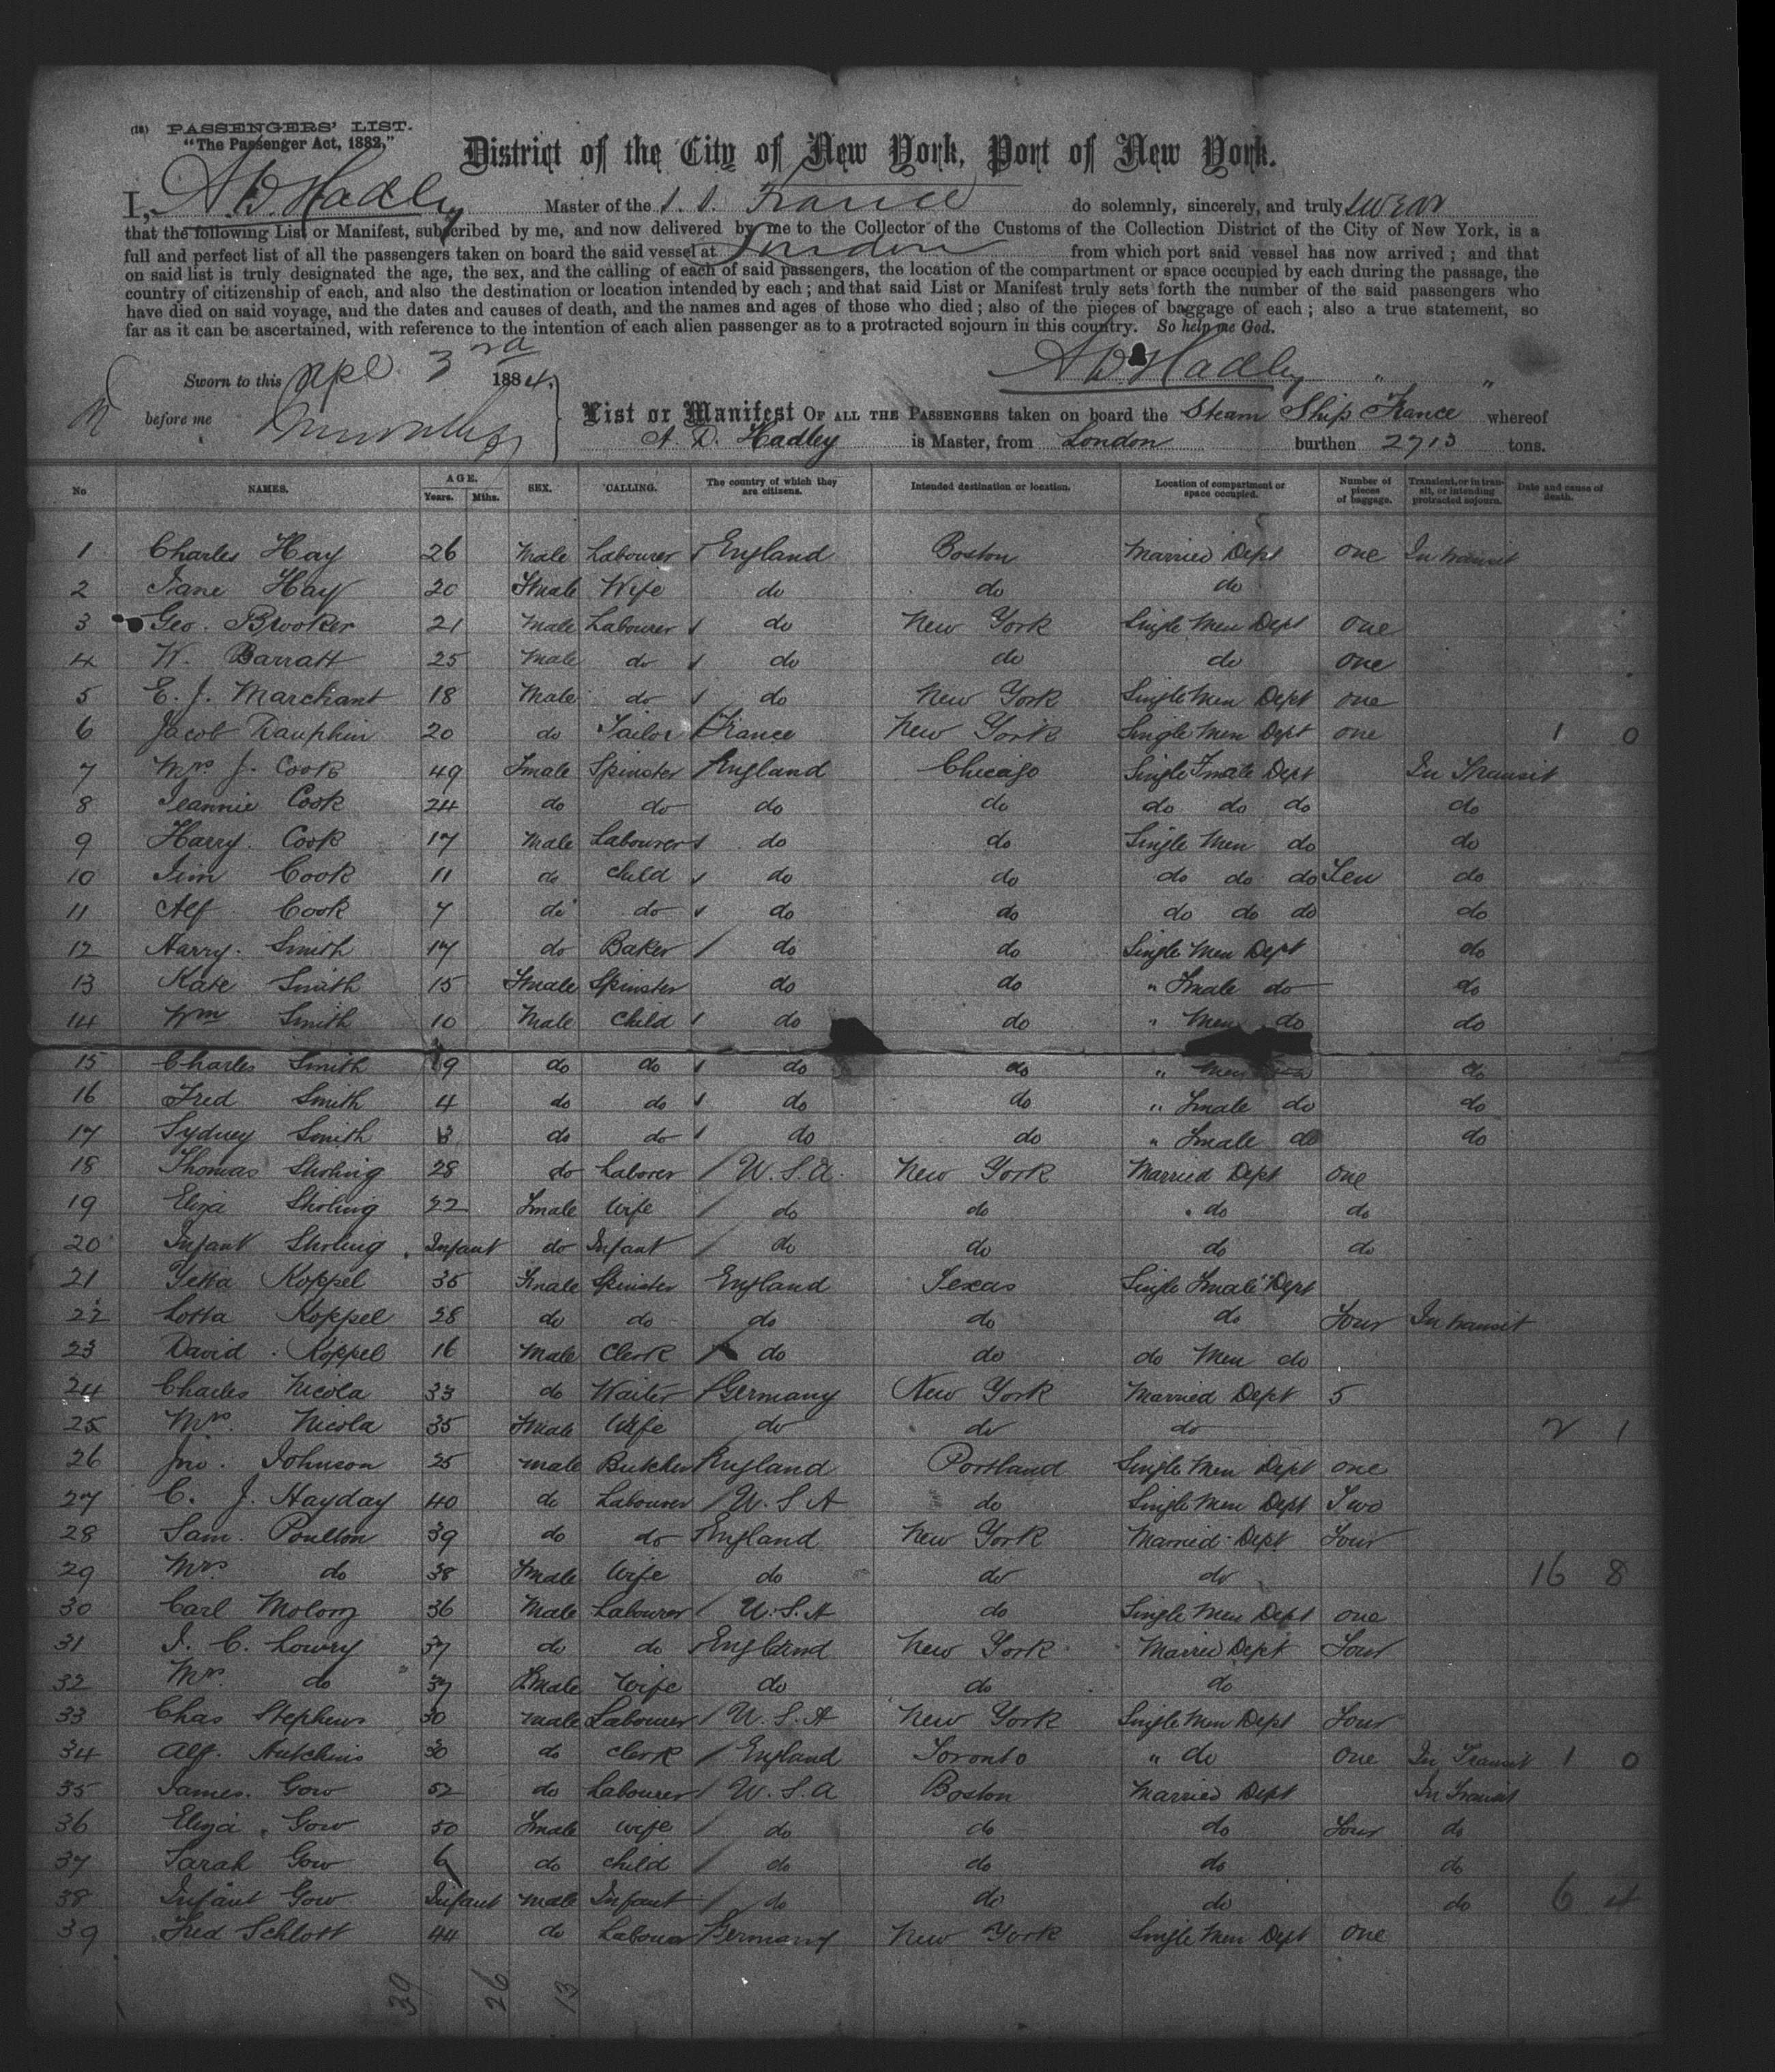 (18) PASSENGERS' LIST.
"The Passenger Act, 1882,"
District of the City of New York, Port of New York.
I, A. D. Hadley Master of the S. S. France do solemnly, sincerely, and truly swear
that the following List or Manifest, subscribed by me, and now delivered by me to the Collector of the Customs of the Collection District of the City of New York, is a
full and perfect list of all the passengers taken on board the said vessel at London from which port said vessel has now arrived ; and that
on said list is truly designated the age, the sex, and the calling of each of said passengers, the location of the compartment or space occupied by each during the passage, the
country of citizenship of each, and also the destination or location intended by each ; and that said List or Manifest truly sets forth the number of the said passengers who
have died on said voyage, and the dates and causes of death, and the names and ages of those who died ; also of the pieces of baggage of each ; also a true statement, so
far as it can be ascertained, with reference to the intention of each alien passenger as to a protracted sojourn in this country. So help me God.
A D Hadley " "
Sworn to this Apl. 3rd 1884,
before me
List or Manifest OF ALL THE PASSENGERS taken on board the Steam Ship France whereof
A. D. Hadley is Master, from London burthen 2713 tons.
No NAMES. AGE. Years. Mths. SEX. CALLING. The country of which they are citizens. Intended destination or location. Location of compartment or space occupied. Number of pieces of baggage. Transient, or in transit, or intending protracted sojourn. Date and cause of death.
1 Charles Hay 26 Male Labourer England Boston Married Dept one In transit
2 Jane Hay 20 Fmale Wife do do do
3 Geo. Brooker 21 Male Labourer do New York Single Men Dept one
4 W. Barratt 25 Male do do do do one
5 E. J. Marchant 18 Male do do New York Single Men Dept one
6 Jacob Dauphin 20 do Tailor France New York Single Men Dept one 1 0
7 Mrs J. Cook 49 Fmale Spinster England Chicago Single Fmale Dept In Transit
8 Jeannie Cook 24 do do do do do do do do
9 Harry Cook 17 Male Labourer do do Single Men do do
10 Jim Cook 11 do child do do do do do Ten do
11 Alf Cook 7 do do do do do do do do
12 Harry Smith 17 do Baker do do Single Men Dept do
13 Kate Smith 15 Fmale Spinster do do " Fmale do do
14 Wm Smith 10 Male Child do do " Men do do
15 Charles Smith 9 do do do do " Men do
16 Fred Smith 4 do do do do " Fmale do do
17 Sydney Smith 3 do do do do " Fmale do do
18 Thomas Shrling 28 do Laborer U. S. A. New York Married Dept one
19 Eliza Shrling 22 Fmale Wife do do do do
20 Infant Shrling Infant do Infant do do do do
21 Yetta Koppel 35 Fmale Spinster England Texas Single Fmale Dept
22 Lotta Koppel 28 do do do do do Four In transit
23 David Koppel 16 Male Clerk do do do Men do
24 Charles Nicola 33 do Waiter Germany New York Married Dept 5
25 Mrs. Nicola 35 Fmale Wife do do do 2 1
26 Jno. Johnson 25 male Butcher England Portland Single Men Dept one
27 C. J. Hayday 40 do Labourer U. S. A do Single Men Dept Two
28 Sam. Poulton 39 do do England New York Married Dept Four
29 Mrs do 38 Fmale Wife do do do 16 8
30 Carl 36 Male Labourer U. S. A do Single Men Dept one
31 J. C. Lowry 37 do do England New York Married Dept Four
32 Mrs. do 37 Fmale Wife do do do
33 Chas Stephens 30 male Labourer U. S. A New York Single Men Dept Four
34 Alf. Hutchins 30 do clerk England Toronto " do one In Transit 1 0
35 James Gow 52 do Labourer U. S. A Boston Married Dept In Transit
36 Eliza Gow 50 Fmale wife do do do Four do
37 Sarah Gow 6 do child do do do do
38 Infant Gow Infant male Infant do do do do 6 4
39 Fred Schlott 44 do Labourer Germany New York Single Men Dept one
39 26 13